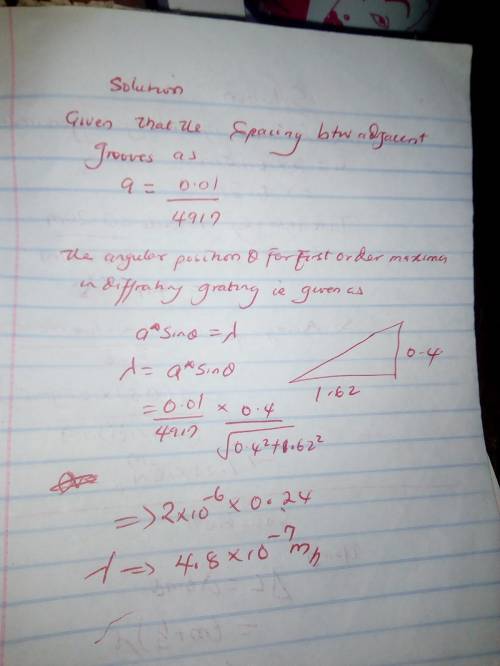 Solution
Given that the Spacing btw adjacent
grooves as
a = 0.01 / 4917
the angular position θ for first order maxima
in diffrating grating ie given as
a* sinθ = λ
λ = a* sinθ
0.4
1.62
= 0.01 / 4917 × 0.4 / √0.4²+1.62²
=> 2×10⁻⁶ × 0.24
λ => 4.8 × 10⁻⁷ m